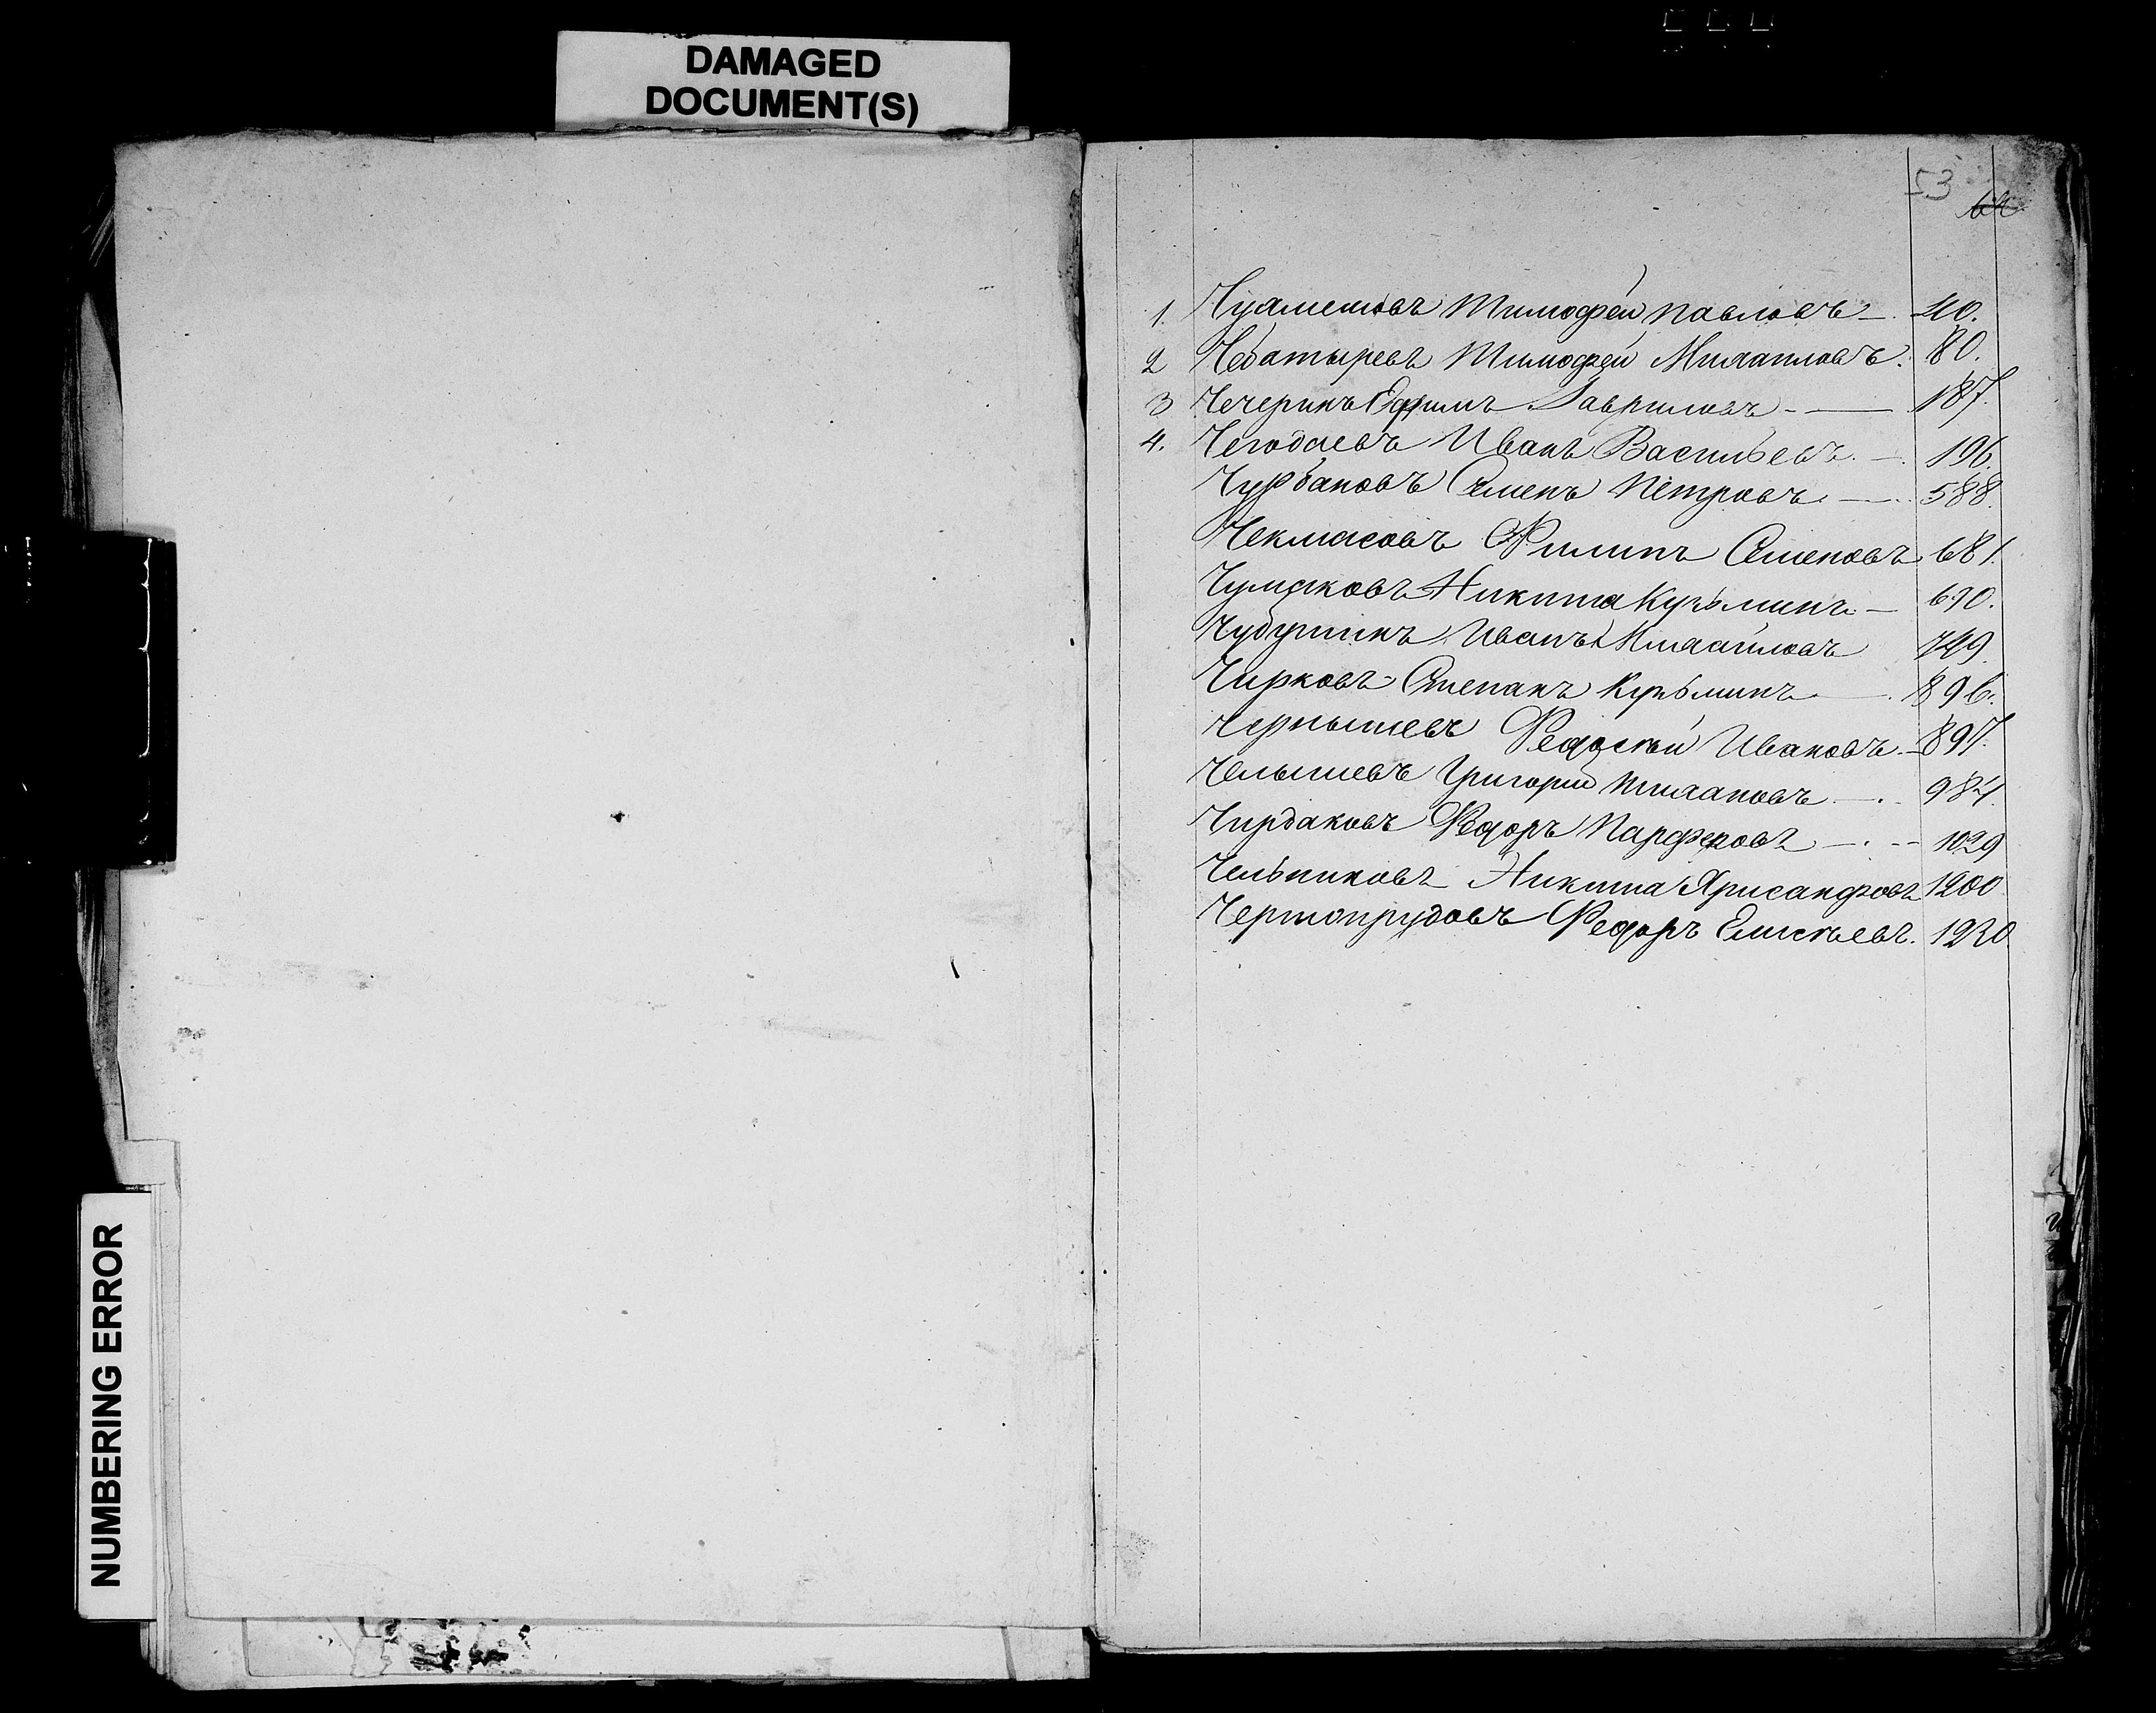 DAMAGED
DOCUMENT(S)
NUMBERING ERROR
53
1. Тимофей Павловъ — 40.
2 Чебатыревъ Тимофей Михаиловъ. 80.
3 Чечеринъ Ефимъ Гавриловъ - — 187.
4. Чегодаевъ Иванъ Васильевъ. —. 196.
Чурбановъ Семенъ Петровъ. —. 588.
Чекмасовъ Филипъ Семеновъ 681.
Чумаковъ Никита Кузьминъ — 690.
Иванъ Михаиловъ 749.
Чирковъ Степанъ Кузьминъ —. 896.
Чернышевъ Федосѣй Ивановъ. — 897.
Челышевъ Григорий —. - 984.
Чирдаковъ Федоръ Парфеновъ —. -- 1029
Чельниковъ Никита Хрисанфовъ 1200
Чертопрудовъ Федоръ Елисѣевъ. 1230